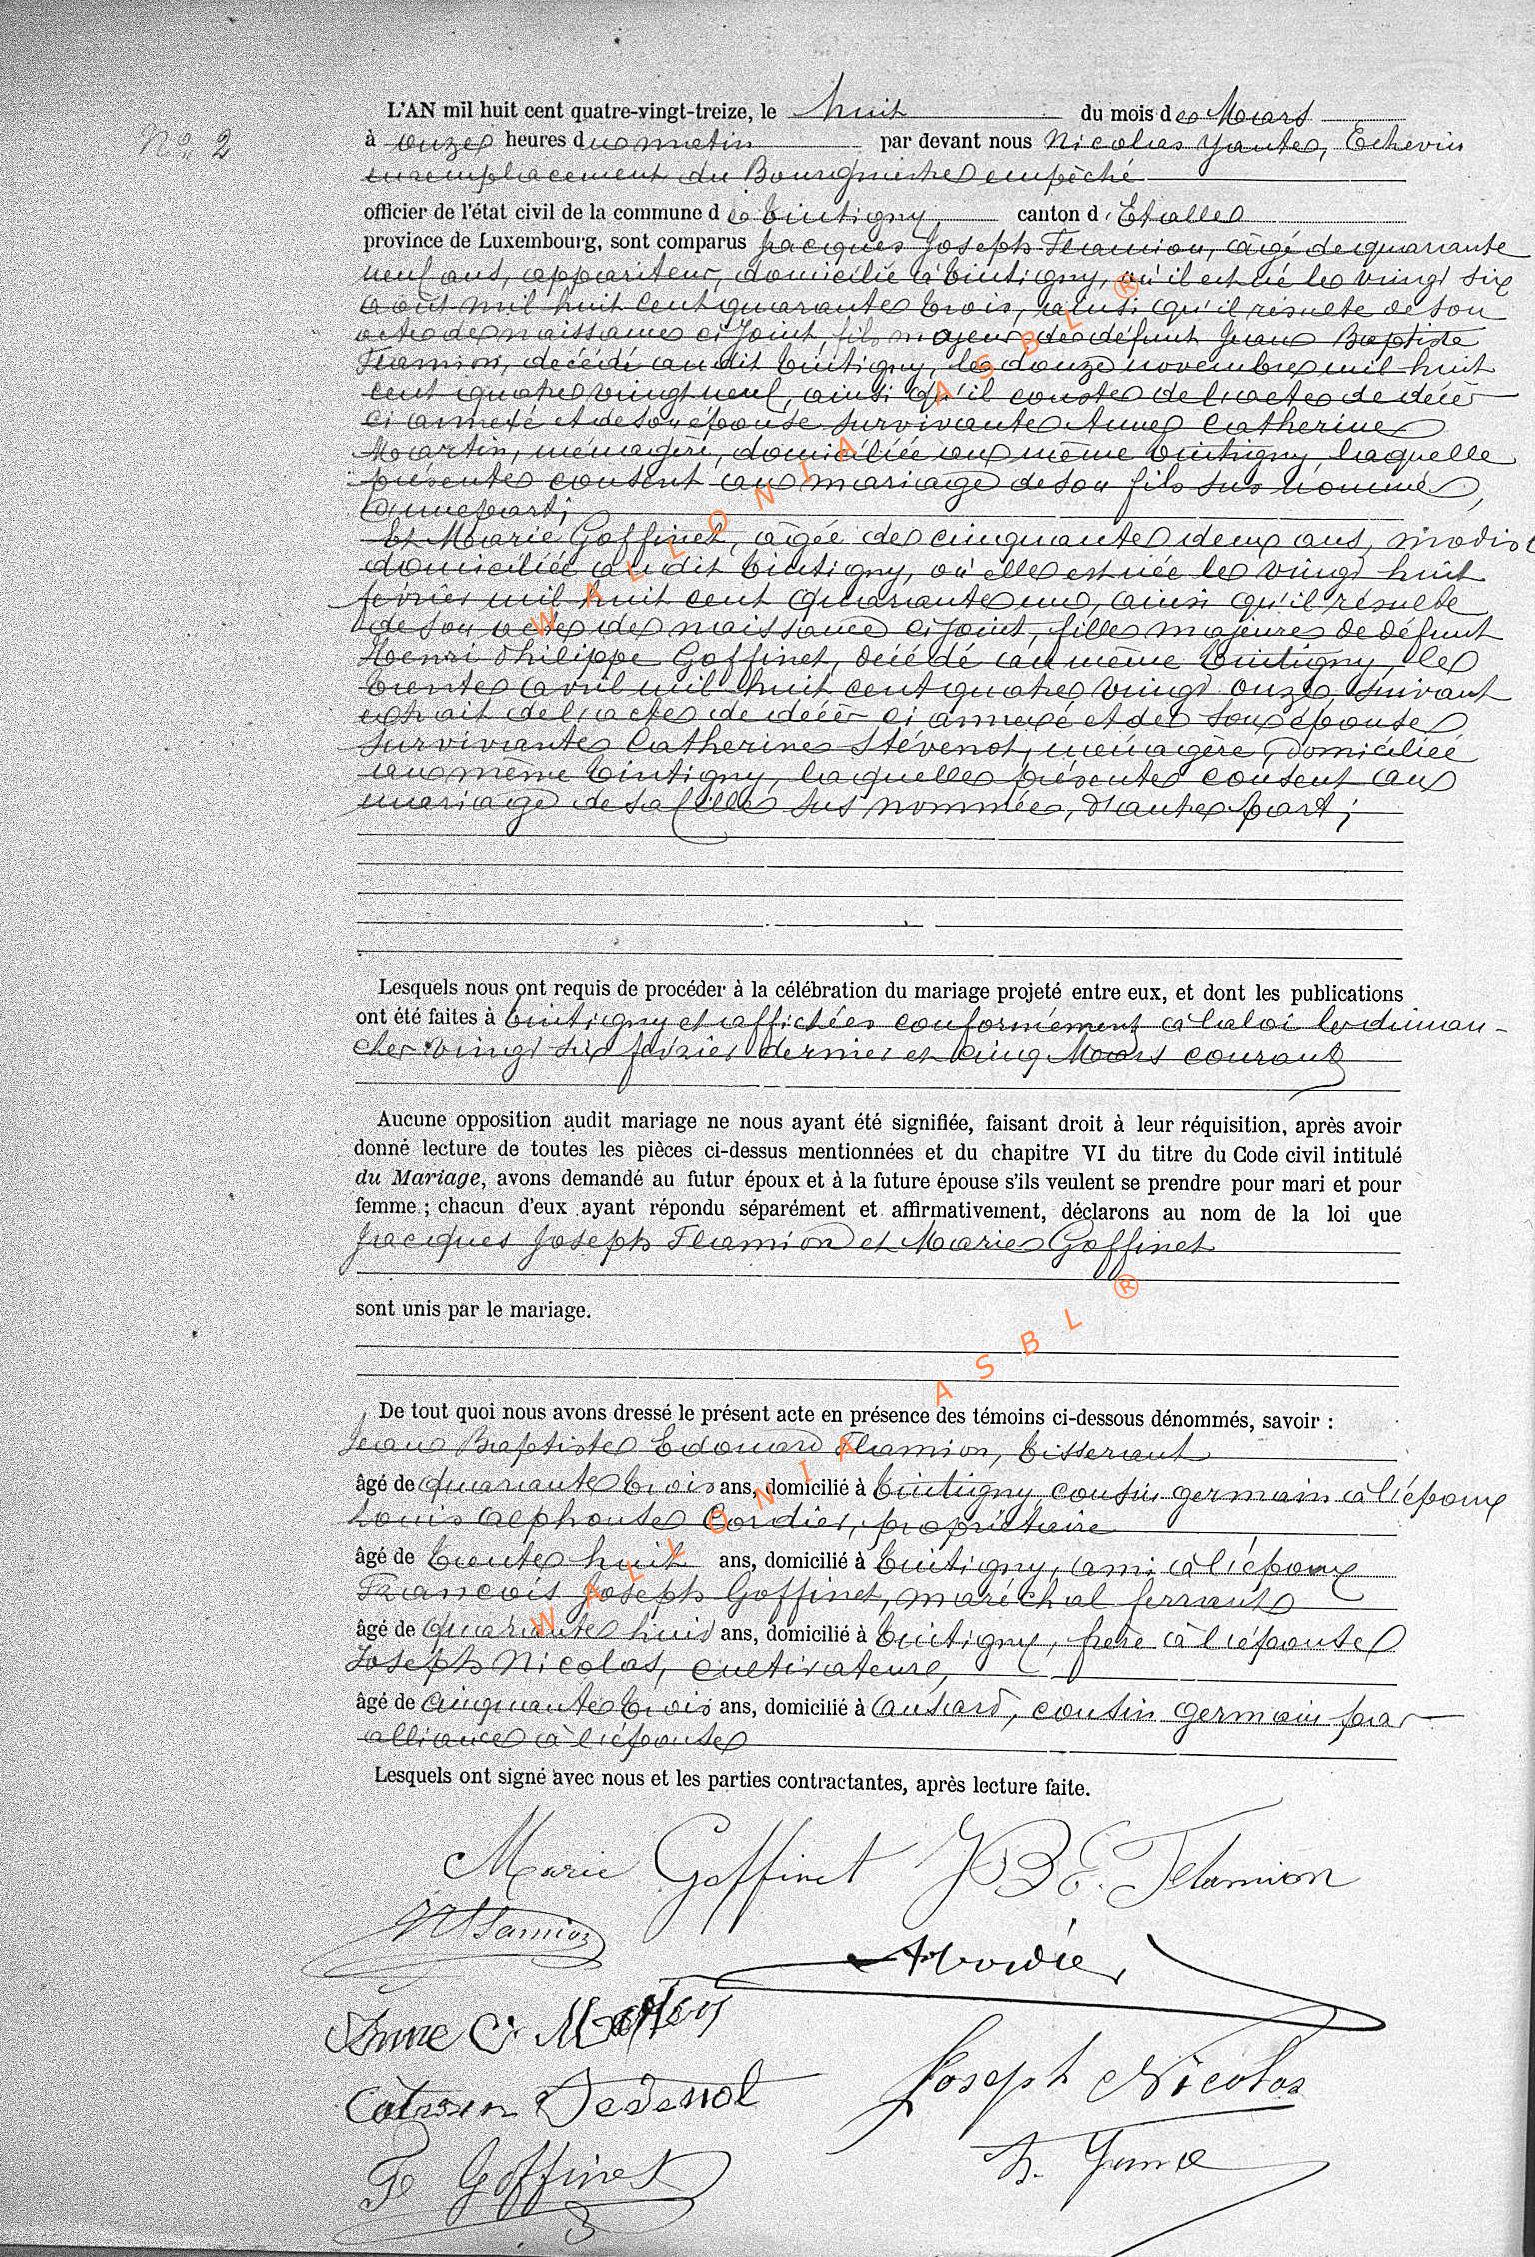 N° 2
L'AN mil huit cent quatre-vingt-treize, le huit du mois de Mars
à onze heures du matin par devant nous Nicolas Yante, Echevin
en remplacement du Bourgmestre empêché
officier de l'état civil de la commune de Tintigny canton d'Etalle
province de Luxembourg, sont comparus Jacques Joseph Flamion, âgé de quarante
neuf ans, appariteur, domicilié à Tintigny, où il est né le vingt six
août mil huit cent quarante trois, ainsi qu'il résulte de son
acte de naissance ci joint, fils majeur de défunt Jean Baptiste
Flamion, décédé au dit Tintigny, le douze novembre mil huit
cent quatre vingt neuf, ainsi qu'il conste de l'acte de décès
ci annexé et de son épouse survivante Anne Catherine
Martin, ménagère, domiciliée au même Tintigny, laquelle
présente consent au mariage de son fils sus nommé,
d'une part;
Et Marie Goffinet, âgée de cinquante deux ans, modiste
domiciliée au dit Tintigny, où elle est née le vingt huit
février mil huit cent quarante un, ainsi qu'il résulte
de son acte de naissance ci joint, fille majeure de défunt
Henri Philippe Goffinet, décédé au même Tintigny, le
trente avril mil huit cent quatre vingt onze, suivant
extrait de l'acte de décès ci annexé et de son épouse
survivante Catherine Stévenot, ménagère, domiciliée
au même Tintigny, laquelle présente consent au
mariage de sa fille sus nommée, d'autre part;
Lesquels nous ont requis de procéder à la célébration du mariage projeté entre eux, et dont les publications
ont été faites à Tintigny et affichées conformément à la loi les diman-
ches vingt six février dernier et cinq Mars courant
Aucune opposition audit mariage ne nous ayant été signifiée, faisant droit à leur réquisition, après avoir
donné lecture de toutes les pièces ci-dessus mentionnées et du chapitre VI du titre du Code civil intitulé
du Mariage, avons demandé au futur époux et à la future épouse s'ils veulent se prendre pour mari et pour
femme ; chacun d'eux ayant répondu séparément et affirmativement, déclarons au nom de la loi que
Jacques Joseph Flamion et Marie Goffinet
sont unis par le mariage.
De tout quoi nous avons dressé le présent acte en présence des témoins ci-dessous dénommés, savoir :
Jean Baptiste Edouard Flamion, tisserant
âgé de quarante trois ans, domicilié à Tintigny cousin germain à l'époux
Louis Alphonse Cordier, propriétaire
âgé de trente huit ans, domicilié à Tintigny, ami à l'époux
François Joseph Goffinet, maréchal ferrant
âgé de quarante huit ans, domicilié à Tintigny, frère à l'épouse
Joseph Nicolas, cultivateur,
âgé de cinquante trois ans, domicilié à Ansart, cousin germain par
alliance à l'épouse
Lesquels ont signé avec nous et les parties contractantes, après lecture faite.
Marie Goffinet JBE. Flamion
Flamion
Anne C. Martin
Joseph Nicolas
Goffinet
WALLONIA ASBL ®
WALLONIA ASBL ®